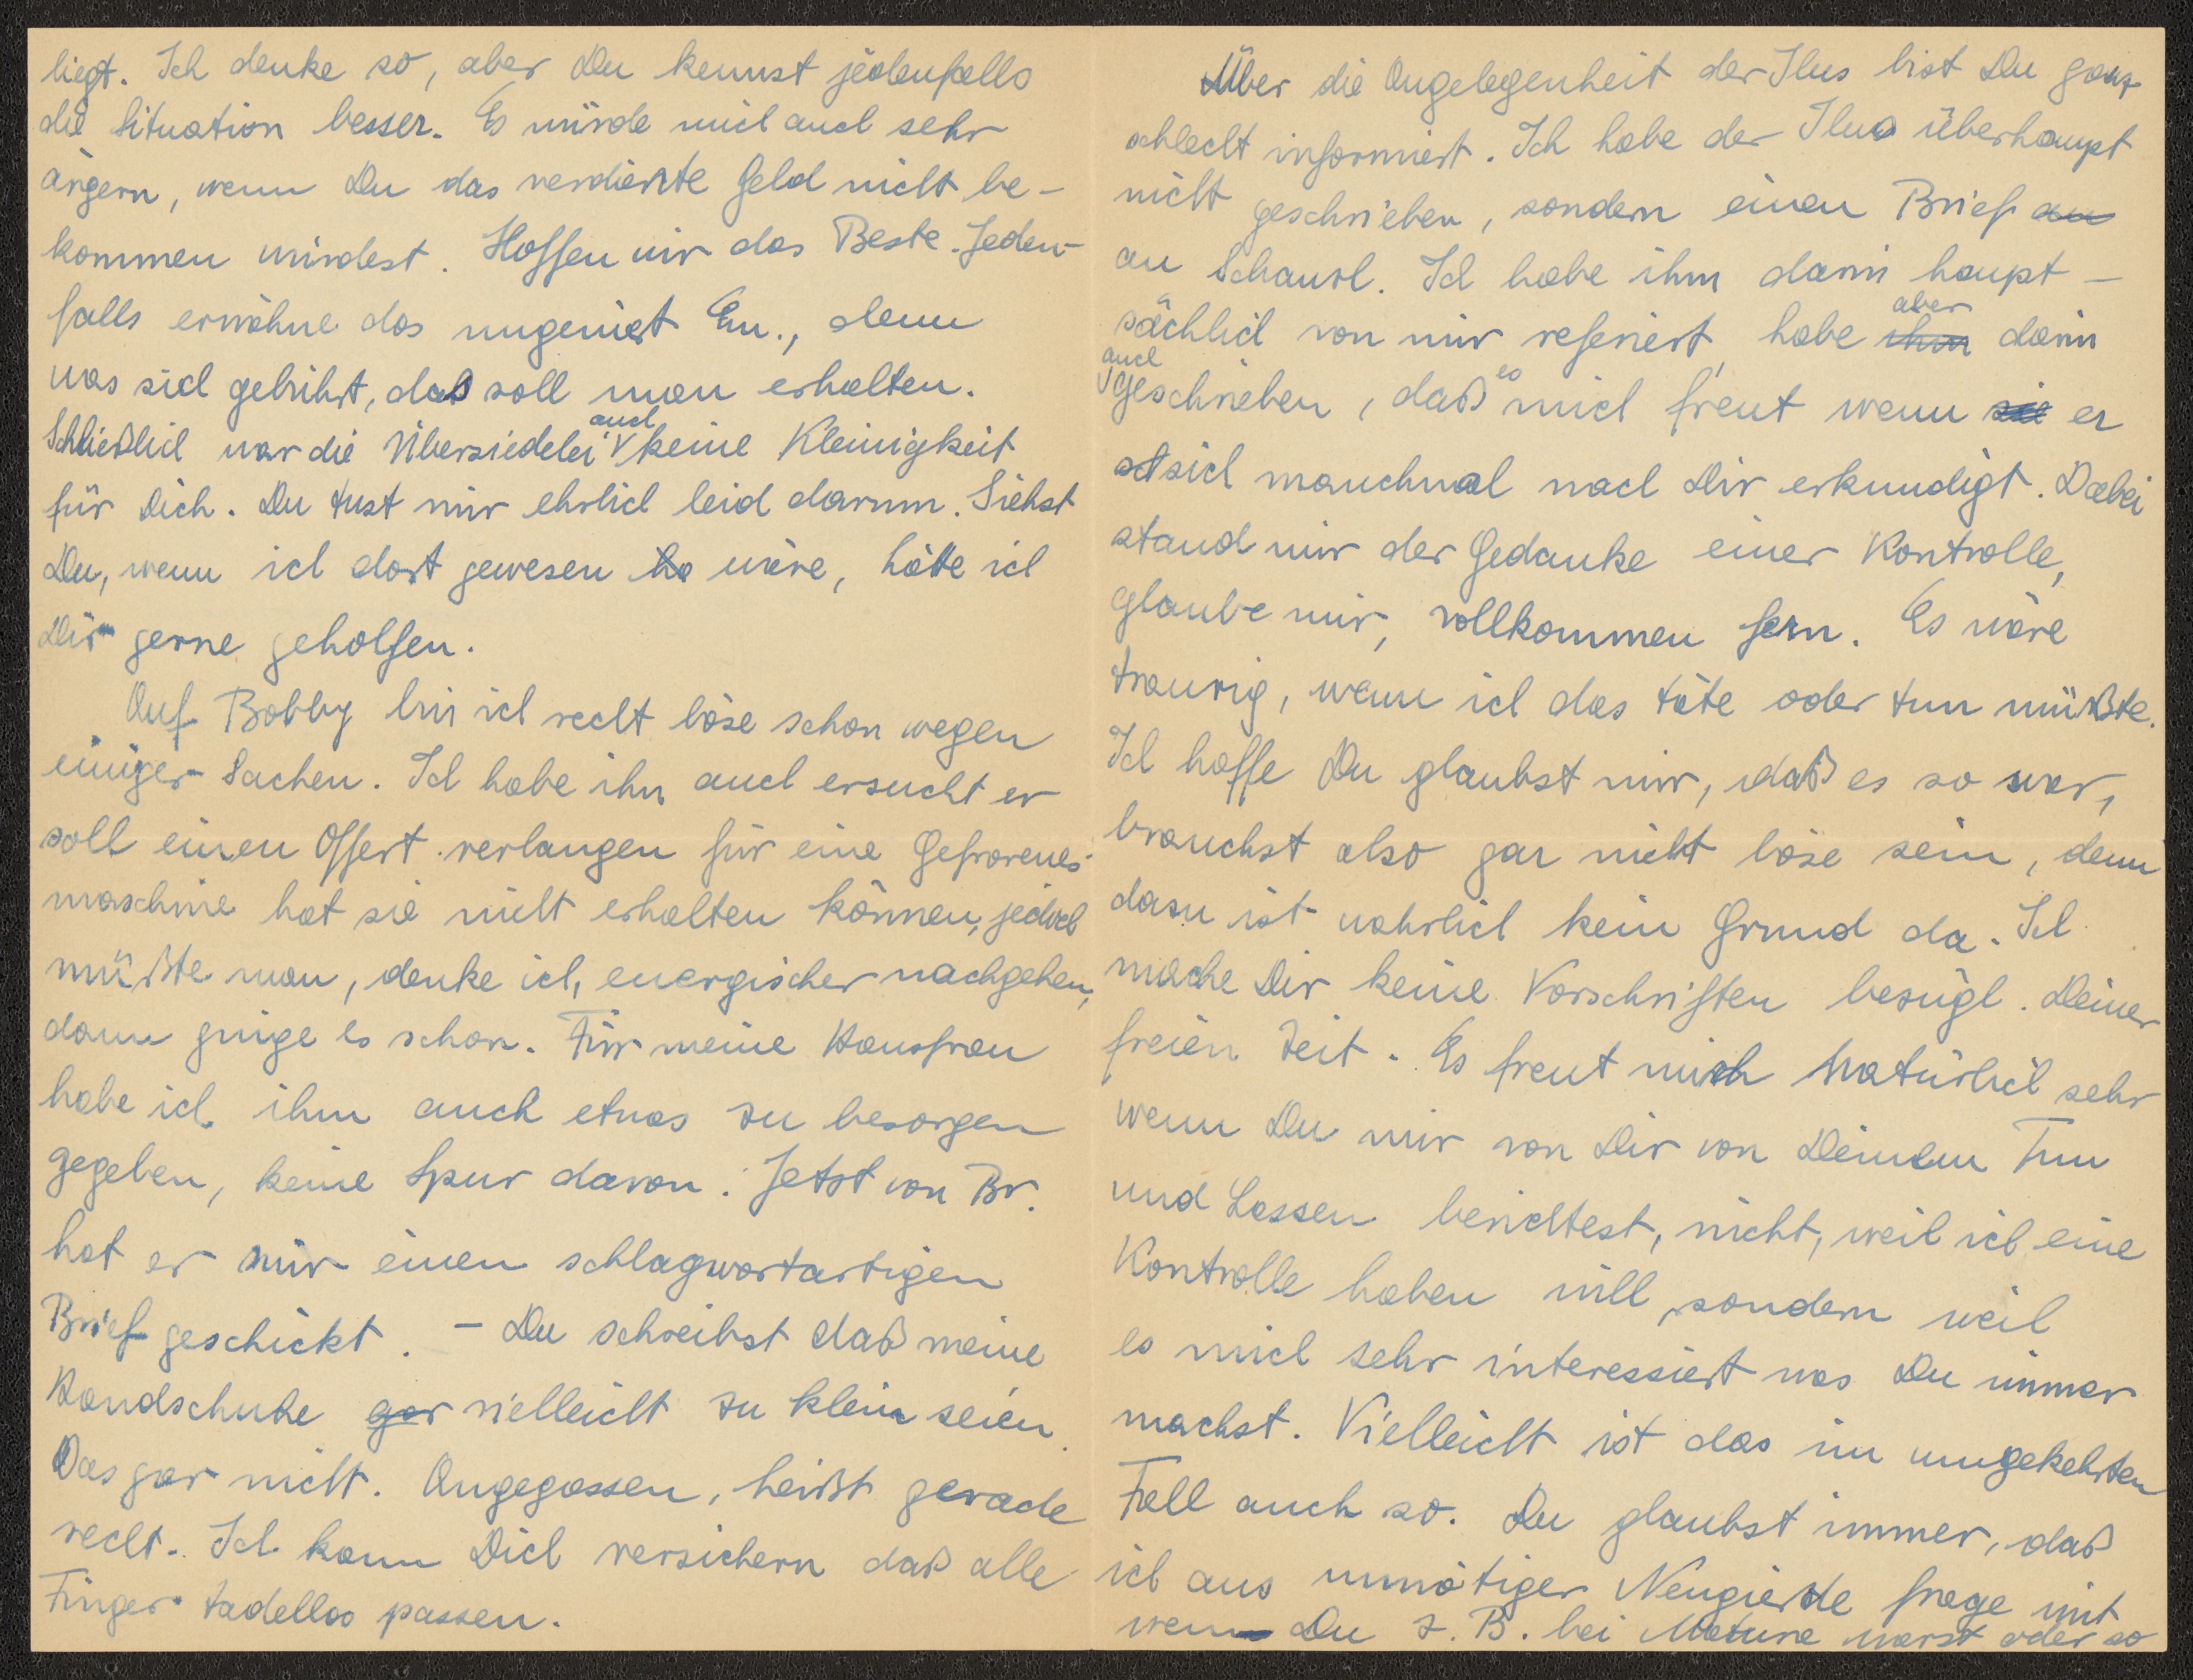 liegt. Ich denke so, aber Du kennst jedenfalls
die Situation besser. Es würde mich auch sehr
ärgern, wenn Du das verdiente Geld nicht be-
kommen würdest. Hoffen wir das Beste. Jeden-
falls erwähne das ungeniert Em., denn
was sich gebührt, das soll man erhalten.
Schließlich war die Übersiedelei auch keine Kleinigkeit
für Dich. Du tust mir ehrlich leid darum. Siehst
Du, wenn ich dort gewesen ha wäre, hätte ich
Dir gerne geholfen.
Auf Bobby bin ich recht böse schon wegen
einiger Sachen. Ich habe ihn auch ersucht er
soll einen Offert verlangen für eine Gefrorenes-
maschine hat sie nicht erhalten können, jedoch
müßte man, denke ich, energischer nachgehen,
dann ginge es schon. Für meine Hausfrau
habe ich ihm auch etwas zu besorgen
gegeben, keine Spur davon. Jetzt von Br.
hat er mir einen schlagwortartigen
Brief geschickt. - Du schreibst daß meine
Handschuhe gar vielleicht zu klein seien.
Das gar nicht. Angegossen, heißt gerade
recht. Ich kann Dich versichern daß alle
Finger tadellos passen.
Über die Angelegenheit der Ilus bist Du ganz
schlecht informiert. Ich habe der Ilus überhaupt
nicht geschrieben, sondern einen Brief an
an Schaurl. Ich habe ihm darin haupt-
sächlich von mir referiert, habe ihm aber darin
auch geschrieben, daß es mich freut wenn sie er
sich manchmal nach Dir erkundigt. Dabei
stand mir der Gedanke einer Kontrolle,
glaube mir, vollkommen fern. Es wäre
traurig, wenn ich das täte oder tun müßte.
Ich hoffe Du glaubst mir, daß es so war,
brauchst also gar nicht böse sein, denn
dazu ist wahrlich kein Grund da. Ich
mache Dir keine Vorschriften bezügl. Deiner
freien Zeit. Es freut mich natürlich sehr
wenn Du mir von Dir von Deinem Tun
und Lassen berichtest, nicht, weil ich eine
Kontrolle haben will, sondern weil
es mich sehr interessiert was Du immer
machst. Vielleicht ist das im umgekehrten
Fall auch so. Du glaubst immer, daß
ich aus unnötiger Neugierde frage mit
wem Du z. B. bei Mature warst oder so